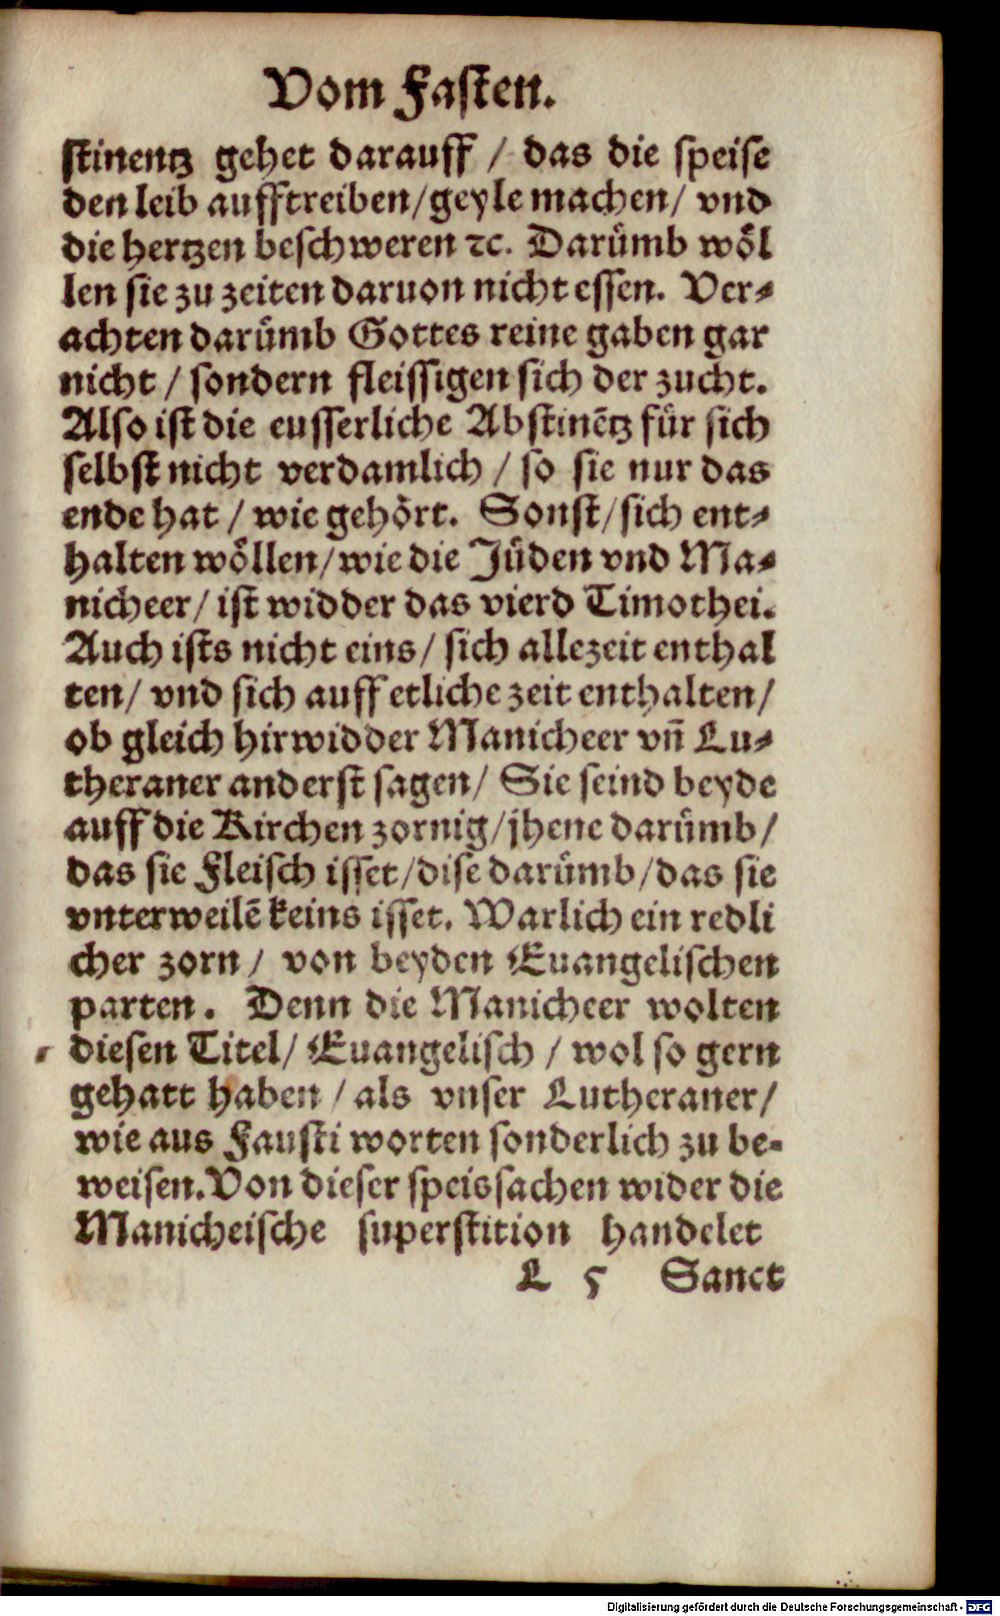 Vom Fasten.
stinentz gehet darauff / das die speise
den leib aufftreiben/geyle machen/ vnd
die hertzen beschweren ꝛc. Darůmb wöl
len sie zu zeiten daruon nicht essen. Ver⸗
achten darůmb Gottes reine gaben gar
nicht / sondern fleissigen sich der zucht.
Also ist die eusserliche Abstinẽtz für sich
selbst nicht verdamlich / so sie nur das
ende hat / wie gehört. Sonst/sich ent⸗
halten wöllen/wie die Jüden vnd Ma⸗
nicheer/ ist widder das vierd Timothei.
Auch ists nicht eins/ sich allezeit enthal
ten/ vnd sich auff etliche zeit enthalten/
ob gleich hirwidder Manicheer vñ Lu⸗
theraner anderst sagen/ Sie seind beyde
auff die Kirchen zornig/jhene darůmb/
das sie Fleisch isset/dise darůmb/das sie
vnterweilẽ keins isset. Warlich ein redli
cher zorn/ von beyden Euangelischen
parten. Denn die Manicheer wolten
diesen Titel/ Euangelisch / wol so gern
gehatt haben / als vnser Lutheraner/
wie aus Fausti worten sonderlich zu be⸗
weisen. Von dieser speissachen wider die
Manicheische superstition handelet
L 5 Sanct
Digitalisierung gefördert durch die Deutsche Forschungsgemeinschaft - DFG